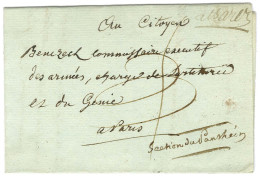 Au Citoyen
Benezech commissaire executif
des armées, chargé de
et du Génie
a Paris
Section du Panthéon